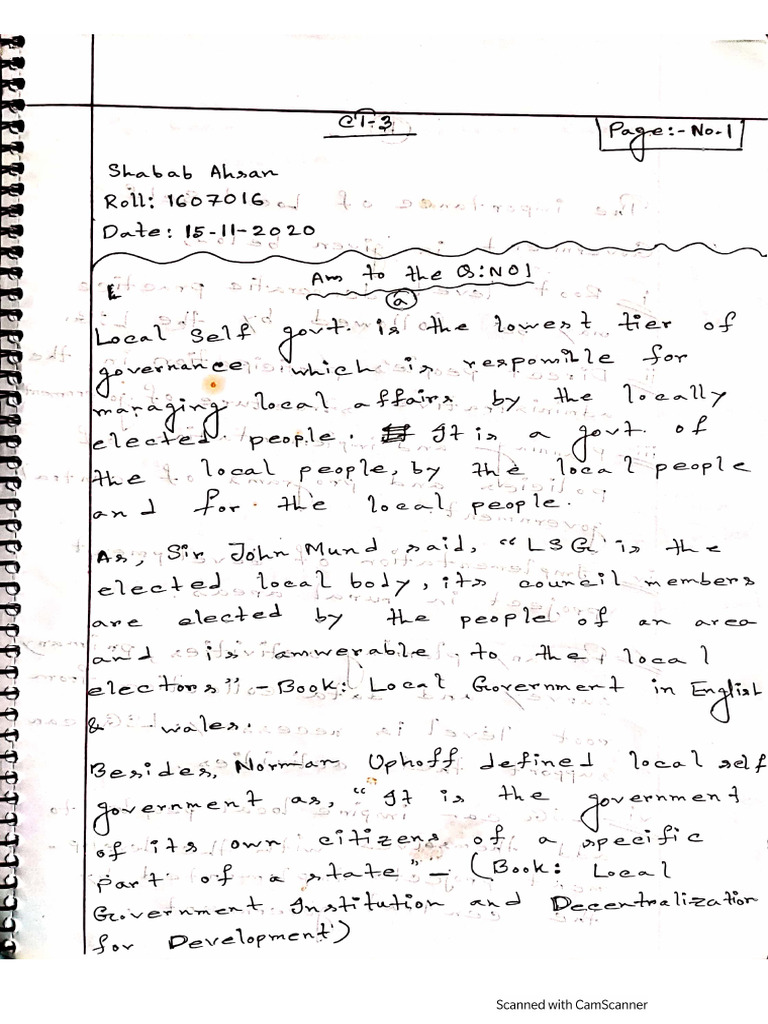 CT-3
Page:- No-1
Shabab Ahsan
Roll: 1607016
Date: 15-11-2020
Ans to the Q: NO1
a
Local Self govt. is the lowest tier of
governance which is responsible for
managing local affairs by the locally
elected people. It is a govt. of
the local people, by the local people
and for the local people.
As, Sir John Mund said, "LSG is the
elected local body, its council members
are elected by the people of an area
and is answerable to the local
electors" - Book: Local Government in English
& wales.
Besides, Norman Uphoff defined local self
government as, "It is the government
of its own citizens of a specific
part of a state" - (Book: Local
Government Institution and Decentralization
for Development)
Scanned with CamScanner